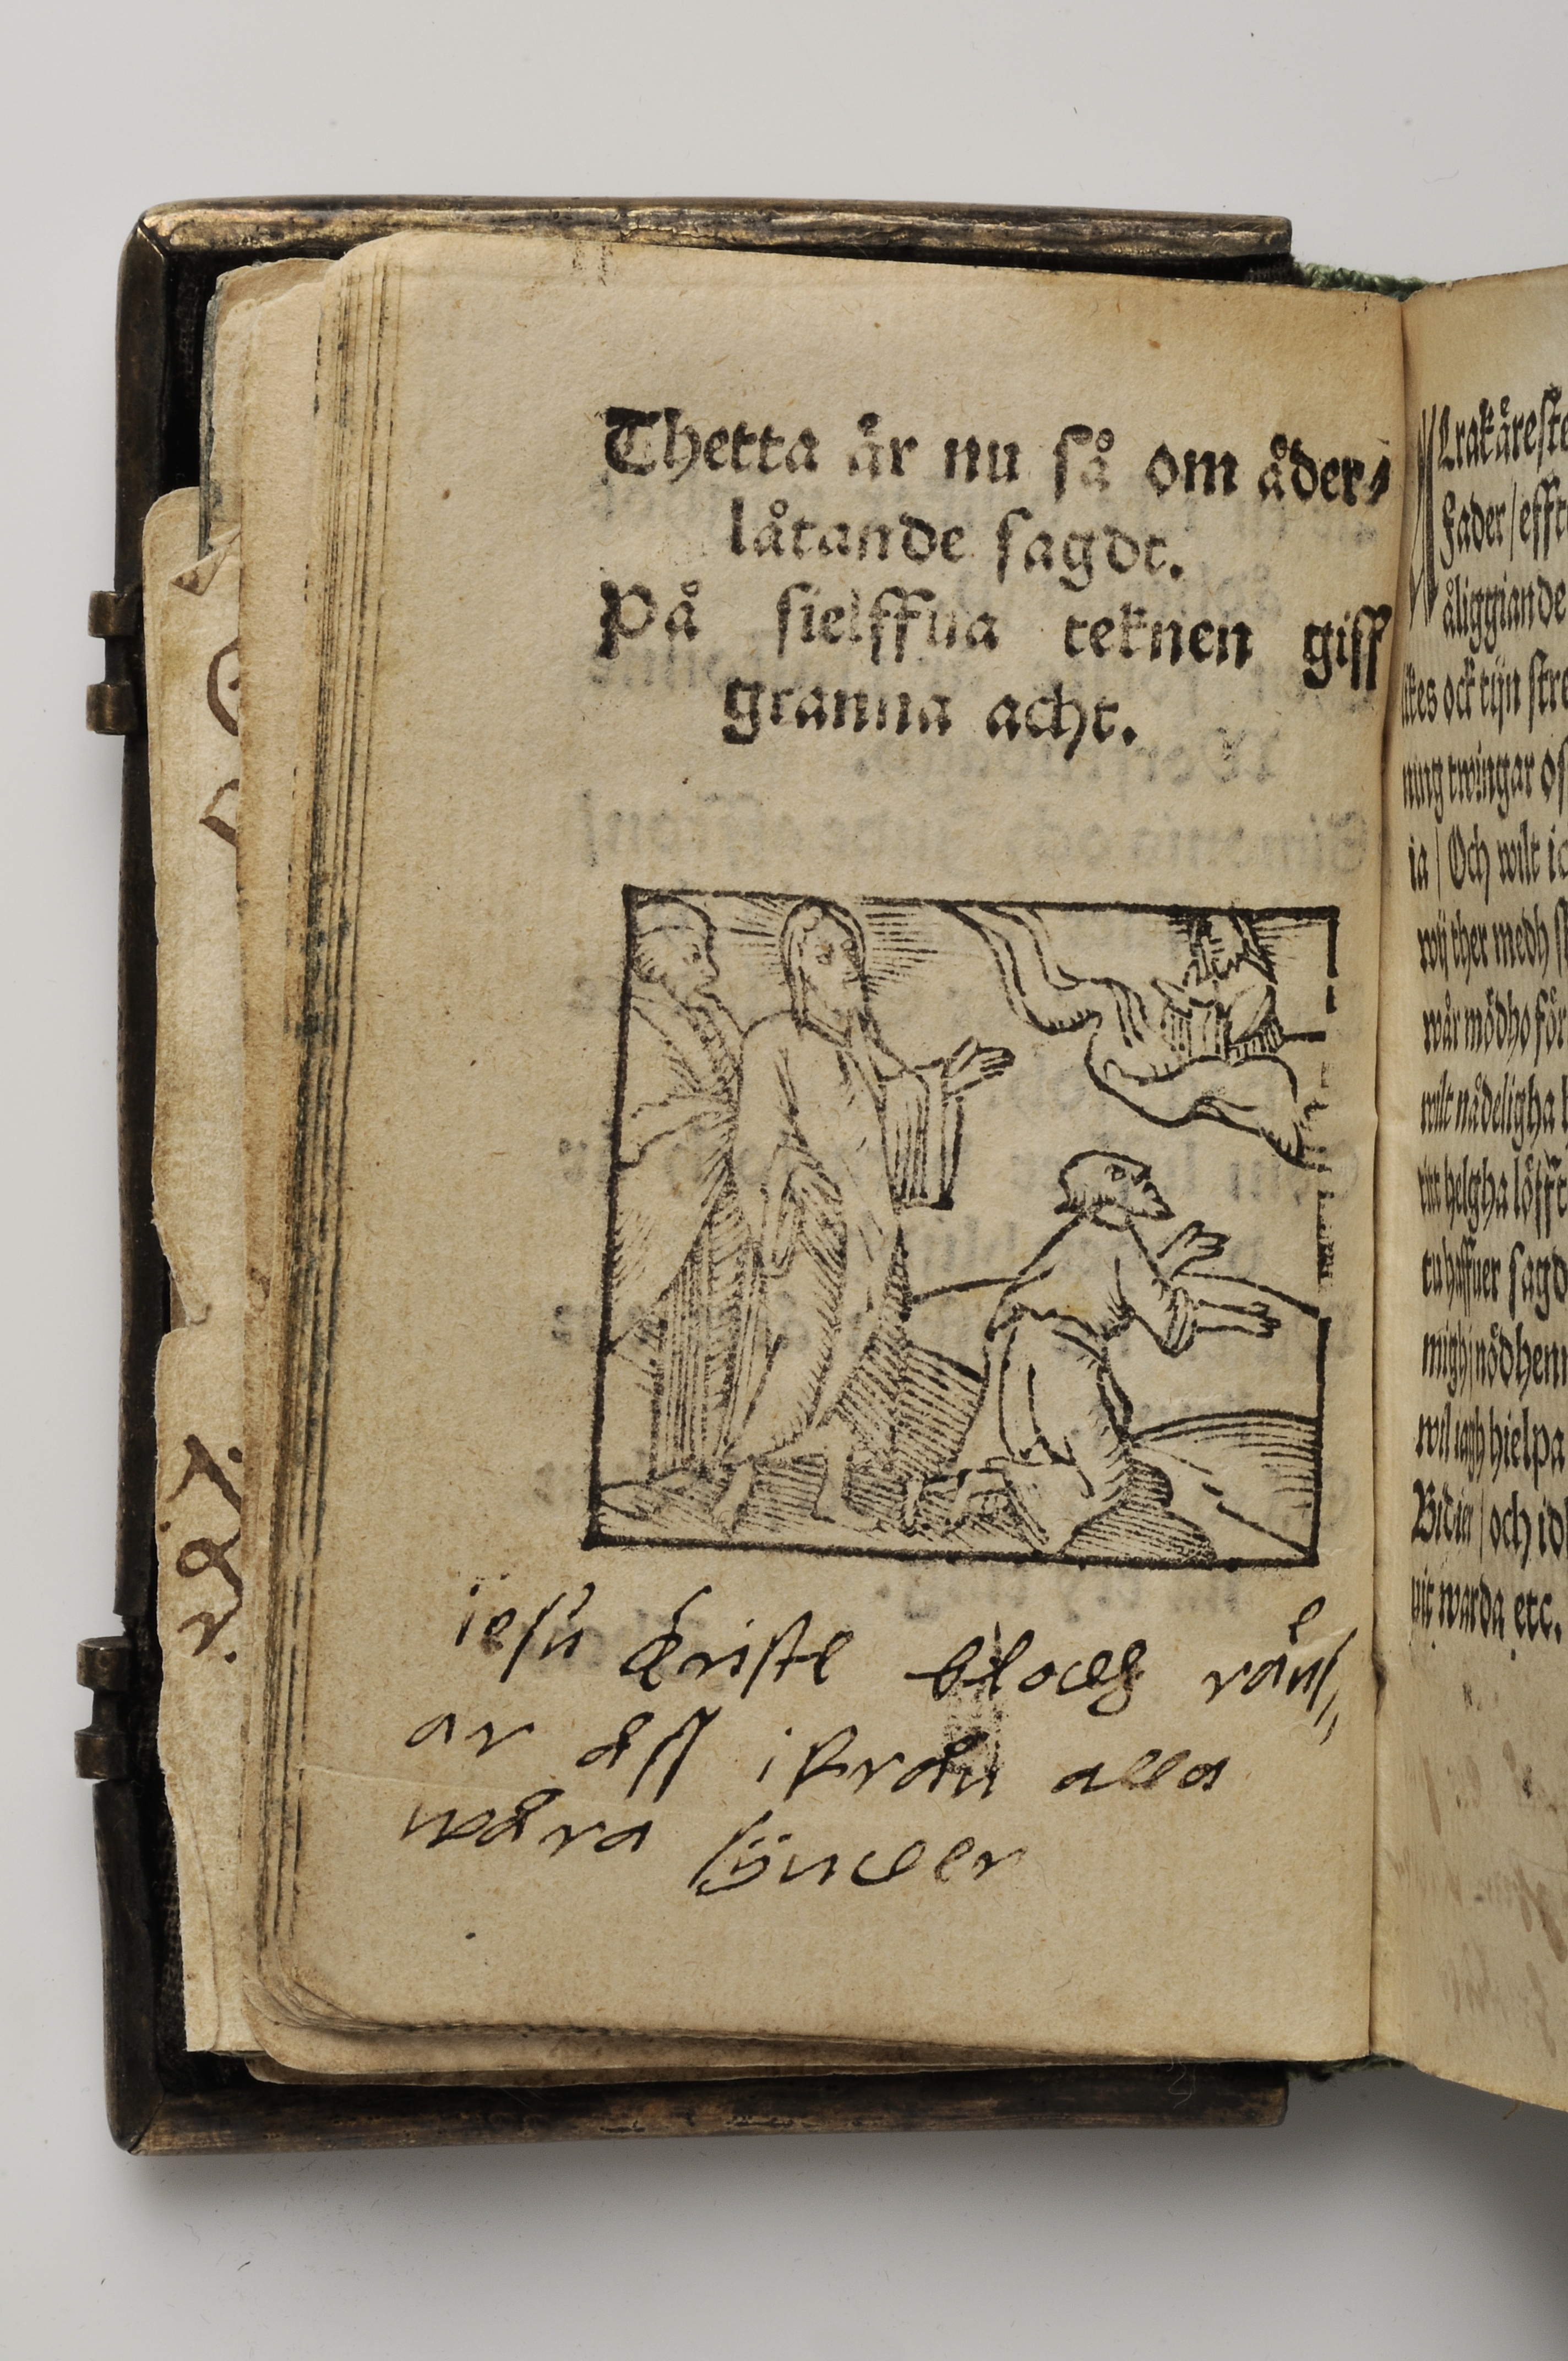 Thetta är nu så om åder⸗
låtande sagdt.
På sielffua teknen giff
granna acht.
iesu Christe blodh räns⸗
ar åss ifrån alla
wåra synder
Fader / efft
åliggiande
ites ock tijn stre
ning twingar os
ia / Och wilt ic
wij ther medh
wår mödho för
wilt nådeligha
titt helgha löfft
tu haffuer sagd
migh i nödhenn
wil iagh hielpa
Bidier / och id
uit warda etc.